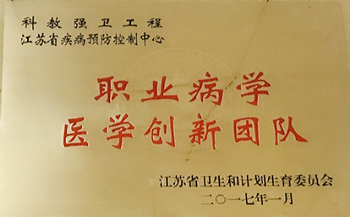 科教强卫工程
江苏省疾病预防控制中心
职业病学
医学创新团队
江苏省卫生和计划生育委员会
二〇一七年一月